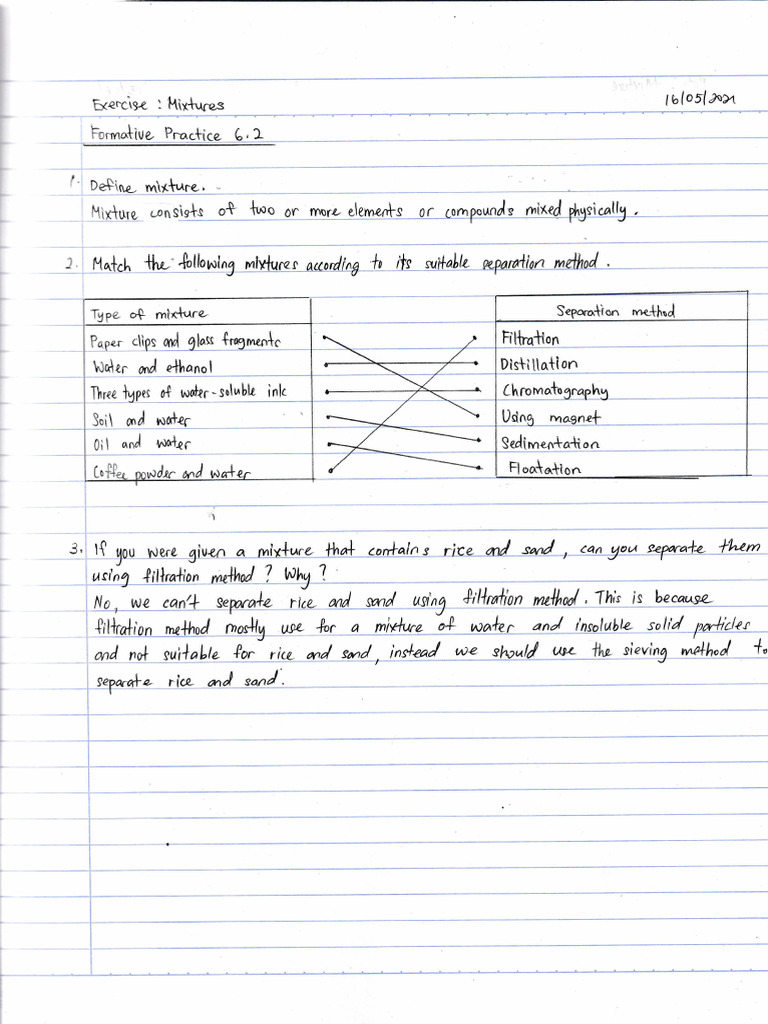 Exercise : Mixtures
16/05/2021
Formative Practice 6.2
1. Define mixture.
Mixture consists of two or more elements or compounds mixed physically.
2. Match the following mixtures according to its suitable separation method.
Type of mixture
Separation method
Paper clips and glass fragments
Filtration
Water and ethanol
Distillation
Three types of water-soluble ink
Chromatography
Soil and water
Using magnet
Oil and water
Sedimentation
Coffee powder and water
Floatation
3. If you were given a mixture that contains rice and sand, can you separate them
using filtration method? Why?
No, we can't separate rice and sand using filtration method. This is because
filtration method mostly use for a mixture of water and insoluble solid particles
and not suitable for rice and sand, instead we should use the sieving method to
separate rice and sand.